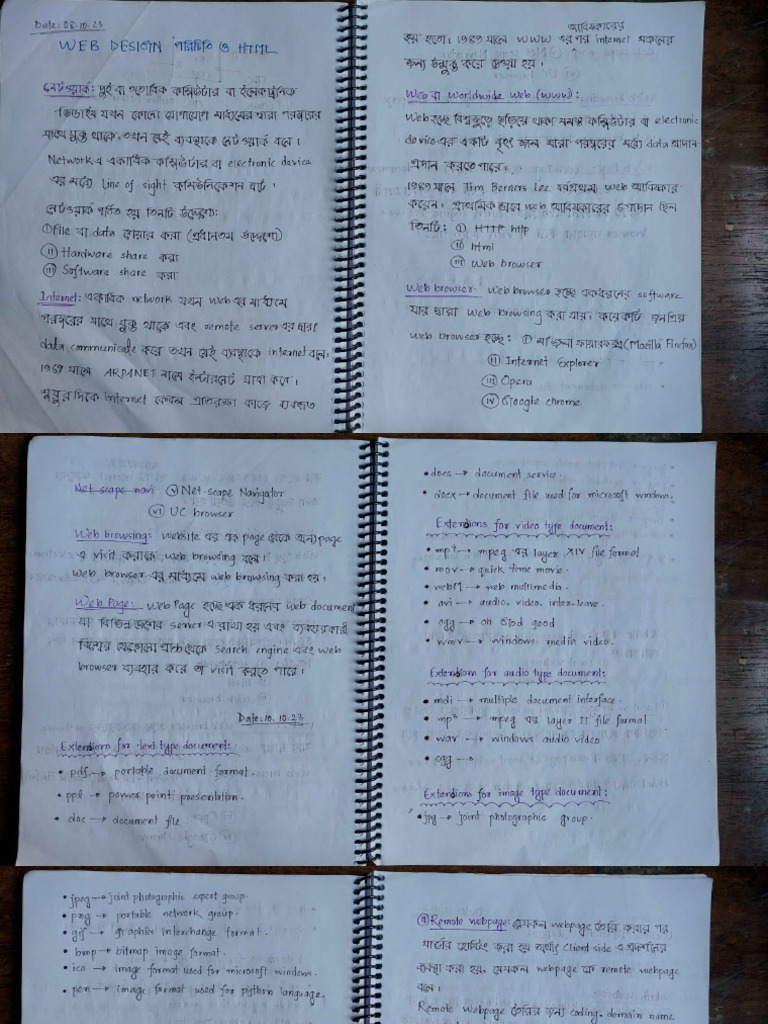 Date: 08.10.23
WEB DESIGN পরিচিতি ও HTML
নেটওয়ার্ক: দুই বা ততোধিক কম্পিউটার বা ইলেকট্রনিক
ডিভাইস যখন কোনো যোগাযোগ মাধ্যমের দ্বারা পরস্পরের
সাথে যুক্ত থাকে, তখন সেই ব্যবস্থাকে নেটওয়ার্ক বলে।
Network এ একাধিক কম্পিউটার বা electronic device
এর মধ্যে Line of sight কমিউনিকেশন ঘটে।
নেটওয়ার্ক গঠিত হয় তিনটি উদ্দেশ্যে:
(i) File বা data শেয়ার করা (প্রধানতম উদ্দেশ্য)
(ii) Hardware share করা
(iii) Software share করা
Internet: একাধিক network যখন web এর মাধ্যমে
পরস্পরের সাথে যুক্ত থাকে এবং remote server এর দ্বারা
data communicate করে তখন সেই ব্যবস্থাকে internet বলে।
1969 সালে ARPANET নামে ইন্টারনেট যাত্রা করে।
শুরুর দিকে internet কেবল প্রতিরক্ষা কাজে ব্যবহৃত
আবিষ্কারের
হয় হতো। 1989 সালে WWW এর পর internet সকলের
জন্য উন্মুক্ত করে দেওয়া হয়।
Web বা Worldwide Web (WWW):
Web হচ্ছে বিশ্বজুড়ে ছড়িয়ে থাকা সমস্ত কম্পিউটার বা electronic
device এর একটি বৃহৎ জাল যারা পরস্পরের মধ্যে data আদান
প্রদান করতে পারে।
1989 সালে Tim Berners Lee সর্বপ্রথম web আবিষ্কার
করেন। প্রাথমিক ভাবে web আবিষ্কারের উপাদান ছিল
তিনটি: (i) HTTP http
(ii) html
(iii) Web browser
Web browser: Web browser হচ্ছে একধরনের software
যার দ্বারা Web browsing করা যায়। কয়েকটি জনপ্রিয়
Web browser হচ্ছে: (i) মজিলা ফায়ারফক্স (Mozilla Firefox)
(ii) Internet Explorer
(iii) Opera
(iv) Google chrome
Net scape navi (v) Net scape Navigator
(vi) UC browser
Web browsing: website এর এক page থেকে অন্য page
এ visit করাকে web browsing বলে।
Web browser এর মাধ্যমে web browsing করা হয়।
Web Page: Web Page হচ্ছে এক ধরনের web document
যা বিভিন্ন server এ রাখা হয় এবং ব্যবহারকারী
বিশ্বের যেকোনো প্রান্ত থেকে search engine এবং web
browser ব্যবহার করে তা visit করতে পারে।
Date: 10.10.23
Extensions for text type document:
• pdf → portable document format.
• ppt → power point presentation.
• doc → document file.
• docs → document service.
• docx → document file used for microsoft windows.
Extensions for video type document:
• mp4 → mpeg এর layer XIV file format
• mov → quick time movie.
• webM → web multimedia.
• avi → audio, video, inter-leave.
• ogg → oh God good
• wmv → windows media video.
Extension for audio type document:
• mdi → multiple document interface.
• mp3 → mpeg এর layer III file format
• wav → windows audio video
• ogg →
Extensions for image type document:
• jpg → joint photographic group.
• jpeg → joint photographic expert group.
• png → portable network group.
• gif → graphics interchange format.
• bmp → bitmap image format.
• ico → image format used for microsoft windows.
• pcn → image format used for python language.
(ii) Remote webpage: যেসকল webpage তৈরি করার পর
সার্ভার হোস্টিং করা হয় অর্থাৎ Client side এ প্রদর্শনের
ব্যবস্থা করা হয়, সেসকল webpage কে remote webpage
বলে।
Remote Webpage তৈরির জন্য coding, domain name